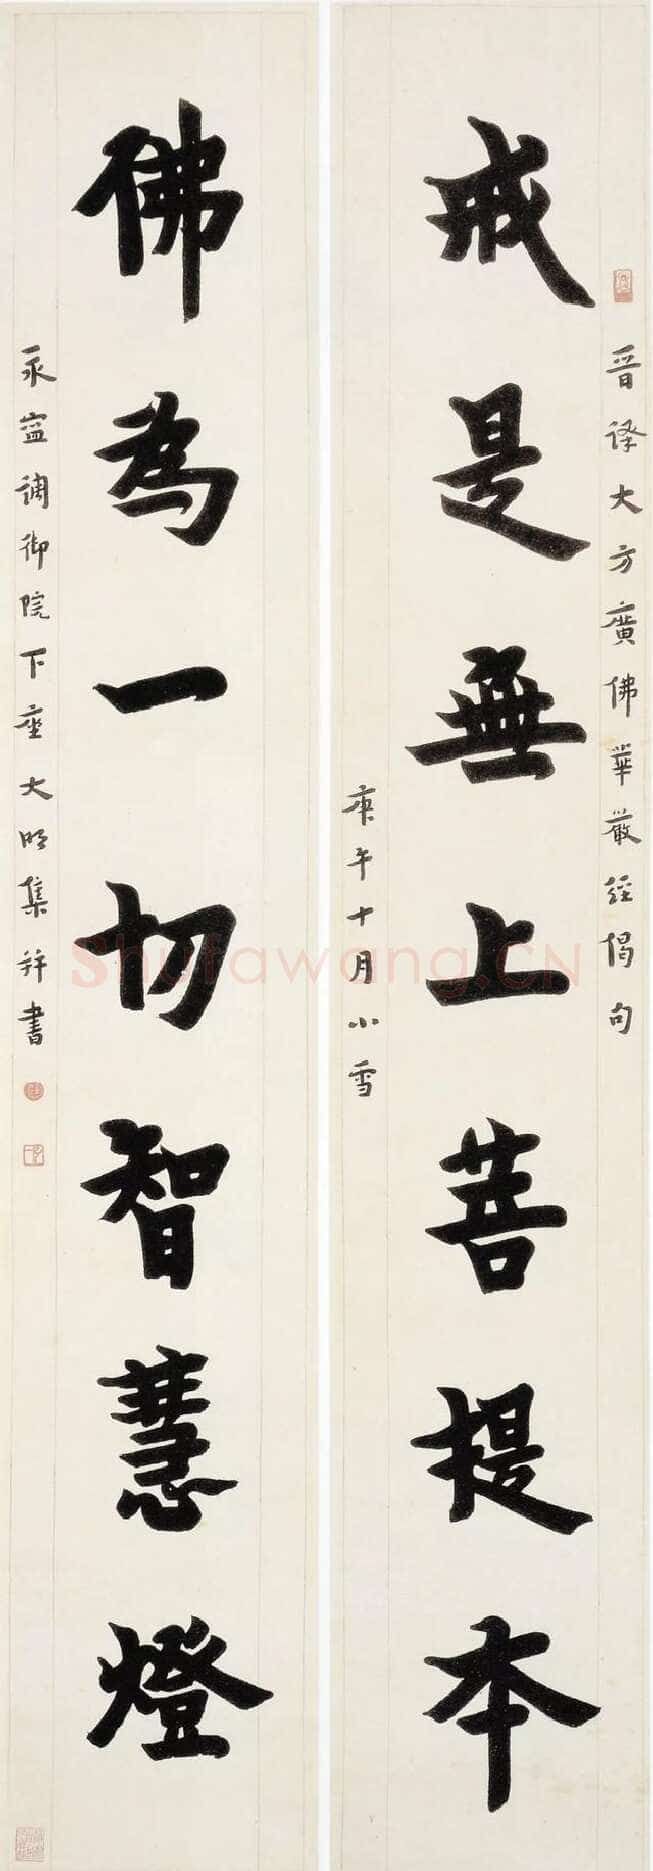 晉譯大方廣佛華嚴經偈句
戒是無上菩提本
庚午十月小雪
佛為一切智慧燈
永寧調御院下座大明集并書
Shufawang.CN